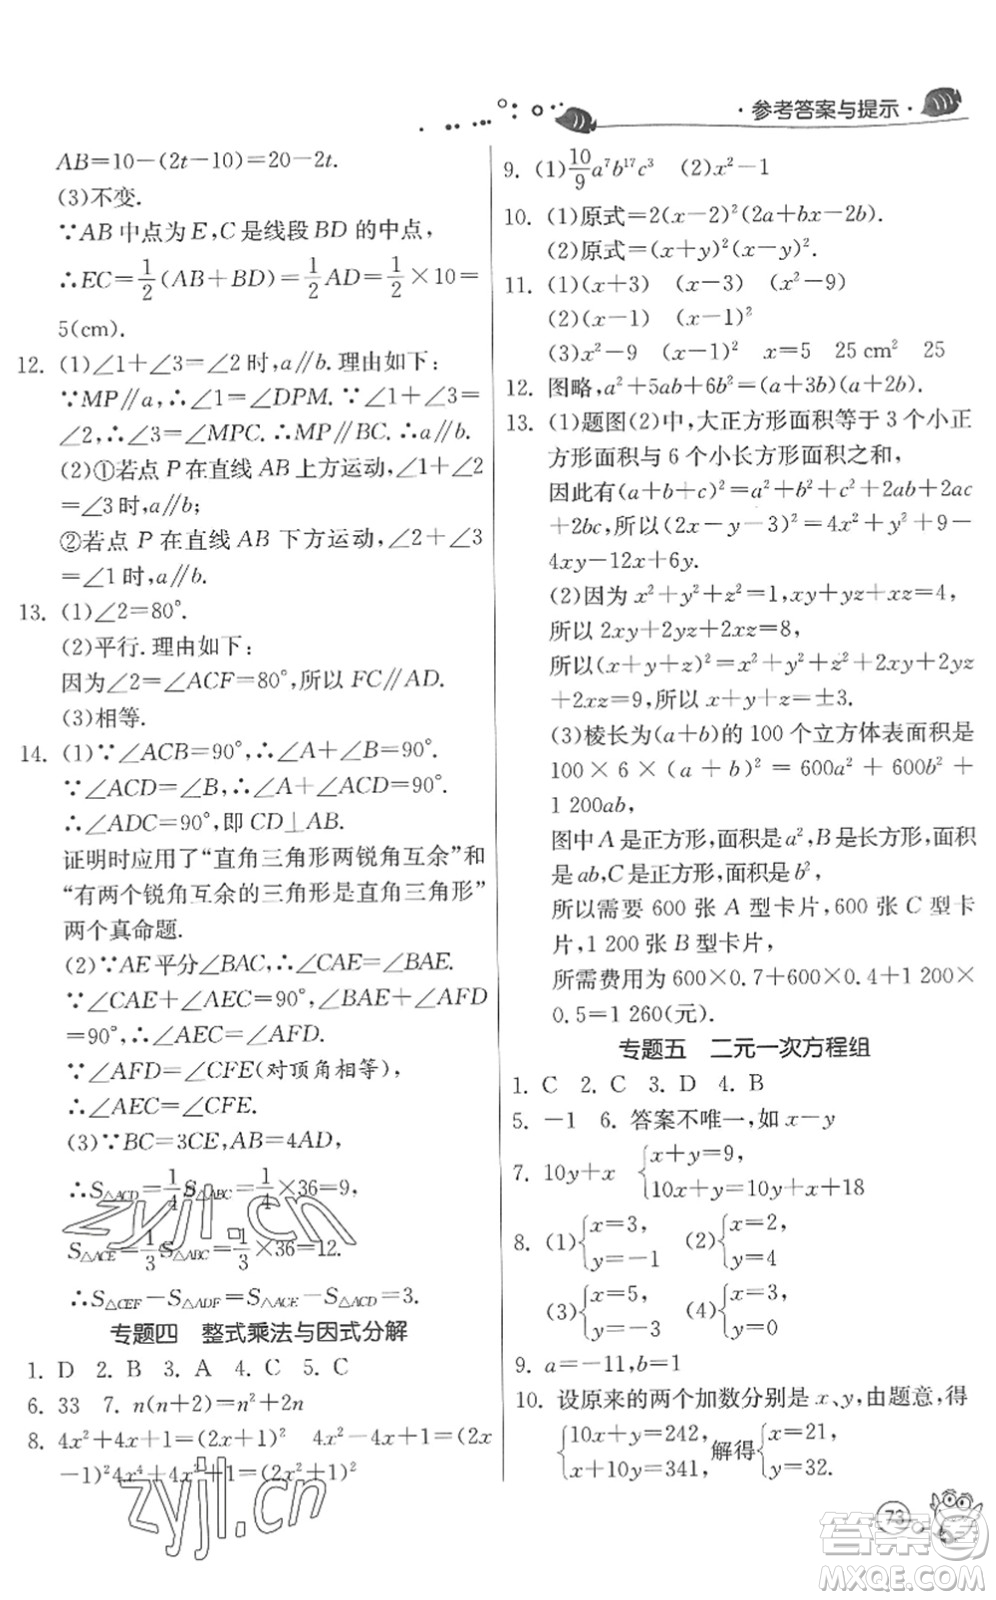 ·参考答案与提示·
AB=10-(2t-10)=20-2t.
(3)不变.
∵AB中点为E,C是线段BD的中点,
∴EC=1/2(AB+BD)=1/2AD=1/2×10=
5(cm).
12. (1)∠1+∠3=∠2时,a∥b.理由如下:
∵MP∥a,∴∠1=∠DPM.∵∠1+∠3=
∠2,∴∠3=∠MPC.∴MP∥BC.∴a∥b.
(2)①若点P在直线AB上方运动,∠1+∠2
=∠3时,a∥b;
②若点P在直线AB下方运动,∠2+∠3
=∠1时,a∥b.
13. (1)∠2=80°.
(2)平行.理由如下:
因为∠2=∠ACF=80°,所以FC∥AD.
(3)相等.
14. (1)∵∠ACB=90°,∴∠A+∠B=90°.
∵∠ACD=∠B,∴∠A+∠ACD=90°.
∴∠ADC=90°,即CD⊥AB.
证明时应用了“直角三角形两锐角互余”和
“有两个锐角互余的三角形是直角三角形”
两个真命题.
(2)∵AE平分∠BAC,∴∠CAE=∠BAE.
∵∠CAE+∠AEC=90°,∠BAE+∠AFD
=90°,∴∠AEC=∠AFD.
∵∠AFD=∠CFE(对顶角相等),
∴∠AEC=∠CFE.
(3)∵BC=3CE,AB=4AD,
∴S△ACD=1/4S△ABC=1/4×36=9,
S△ACE=1/3S△ABC=1/3×36=12.
∴S△CEF-S△ADF=S△ACE-S△ACD=3.
专题四 整式乘法与因式分解
1. D 2. B 3. A 4. C 5. C
6. 33 7. n(n+2)=n²+2n
8. 4x²+4x+1=(2x+1)² 4x²-4x+1=(2x
-1)²4x⁴+4x²+1=(2x²+1)²
9. (1)10/9a⁷b¹⁷c³ (2)x²-1
10. (1)原式=2(x-2)²(2a+bx-2b).
(2)原式=(x+y)²(x-y)².
11. (1)(x+3) (x-3) (x²-9)
(2)(x-1) (x-1)²
(3)x²-9 (x-1)² x=5 25 cm² 25
12. 图略,a²+5ab+6b²=(a+3b)(a+2b).
13. (1)题图(2)中,大正方形面积等于3个小正
方形面积与6个小长方形面积之和,
因此有(a+b+c)²=a²+b²+c²+2ab+2ac
+2bc,所以(2x-y-3)²=4x²+y²+9-
4xy-12x+6y.
(2)因为x²+y²+z²=1,xy+yz+xz=4,
所以2xy+2yz+2xz=8,
所以(x+y+z)²=x²+y²+z²+2xy+2yz
+2xz=9,所以x+y+z=±3.
(3)棱长为(a+b)的100个立方体表面积是
100×6×(a+b)²=600a²+600b²+
1 200ab,
图中A是正方形,面积是a²,B是长方形,面积
是ab,C是正方形,面积是b²,
所以需要600张A型卡片,600张C型卡
片,1 200张B型卡片,
所需费用为600×0.7+600×0.4+1 200×
0.5=1 260(元).
专题五 二元一次方程组
1. C 2. C 3. D 4. B
5. -1 6. 答案不唯一,如x-y
7. 10y+x {x+y=9, 10x+y=10y+x+18
8. (1){x=3, y=-1 (2){x=2, y=4
(3){x=5, y=-3 (4){x=1, y=0
9. a=-11,b=1
10. 设原来的两个加数分别是x、y,由题意,得
{10x+y=242, x+10y=341, 解得{x=21, y=32.
73
zyjl.cn
zyjl.cn
答案圈
MXQE.COM